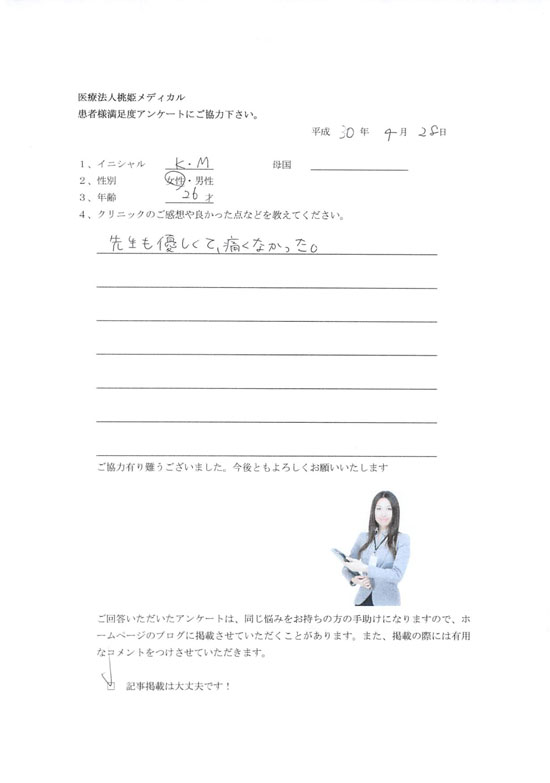 医療法人桃姫メディカル
患者様満足度アンケートにご協力下さい。
平成 30 年 4 月 28 日
1、イニシャル K・M 母国
2、性別 女性・男性
3、年齢 26 才
4、クリニックのご感想や良かった点などを教えてください。
先生も優しくて、痛くなかった。
ご協力有り難うございました。今後ともよろしくお願いいたします
ご回答いただいたアンケートは、同じ悩みをお持ちの方の手助けになりますので、ホ
ームページのブログに掲載させていただくことがあります。また、掲載の際には有用
なコメントをつけさせていただきます。
記事掲載は大丈夫です!